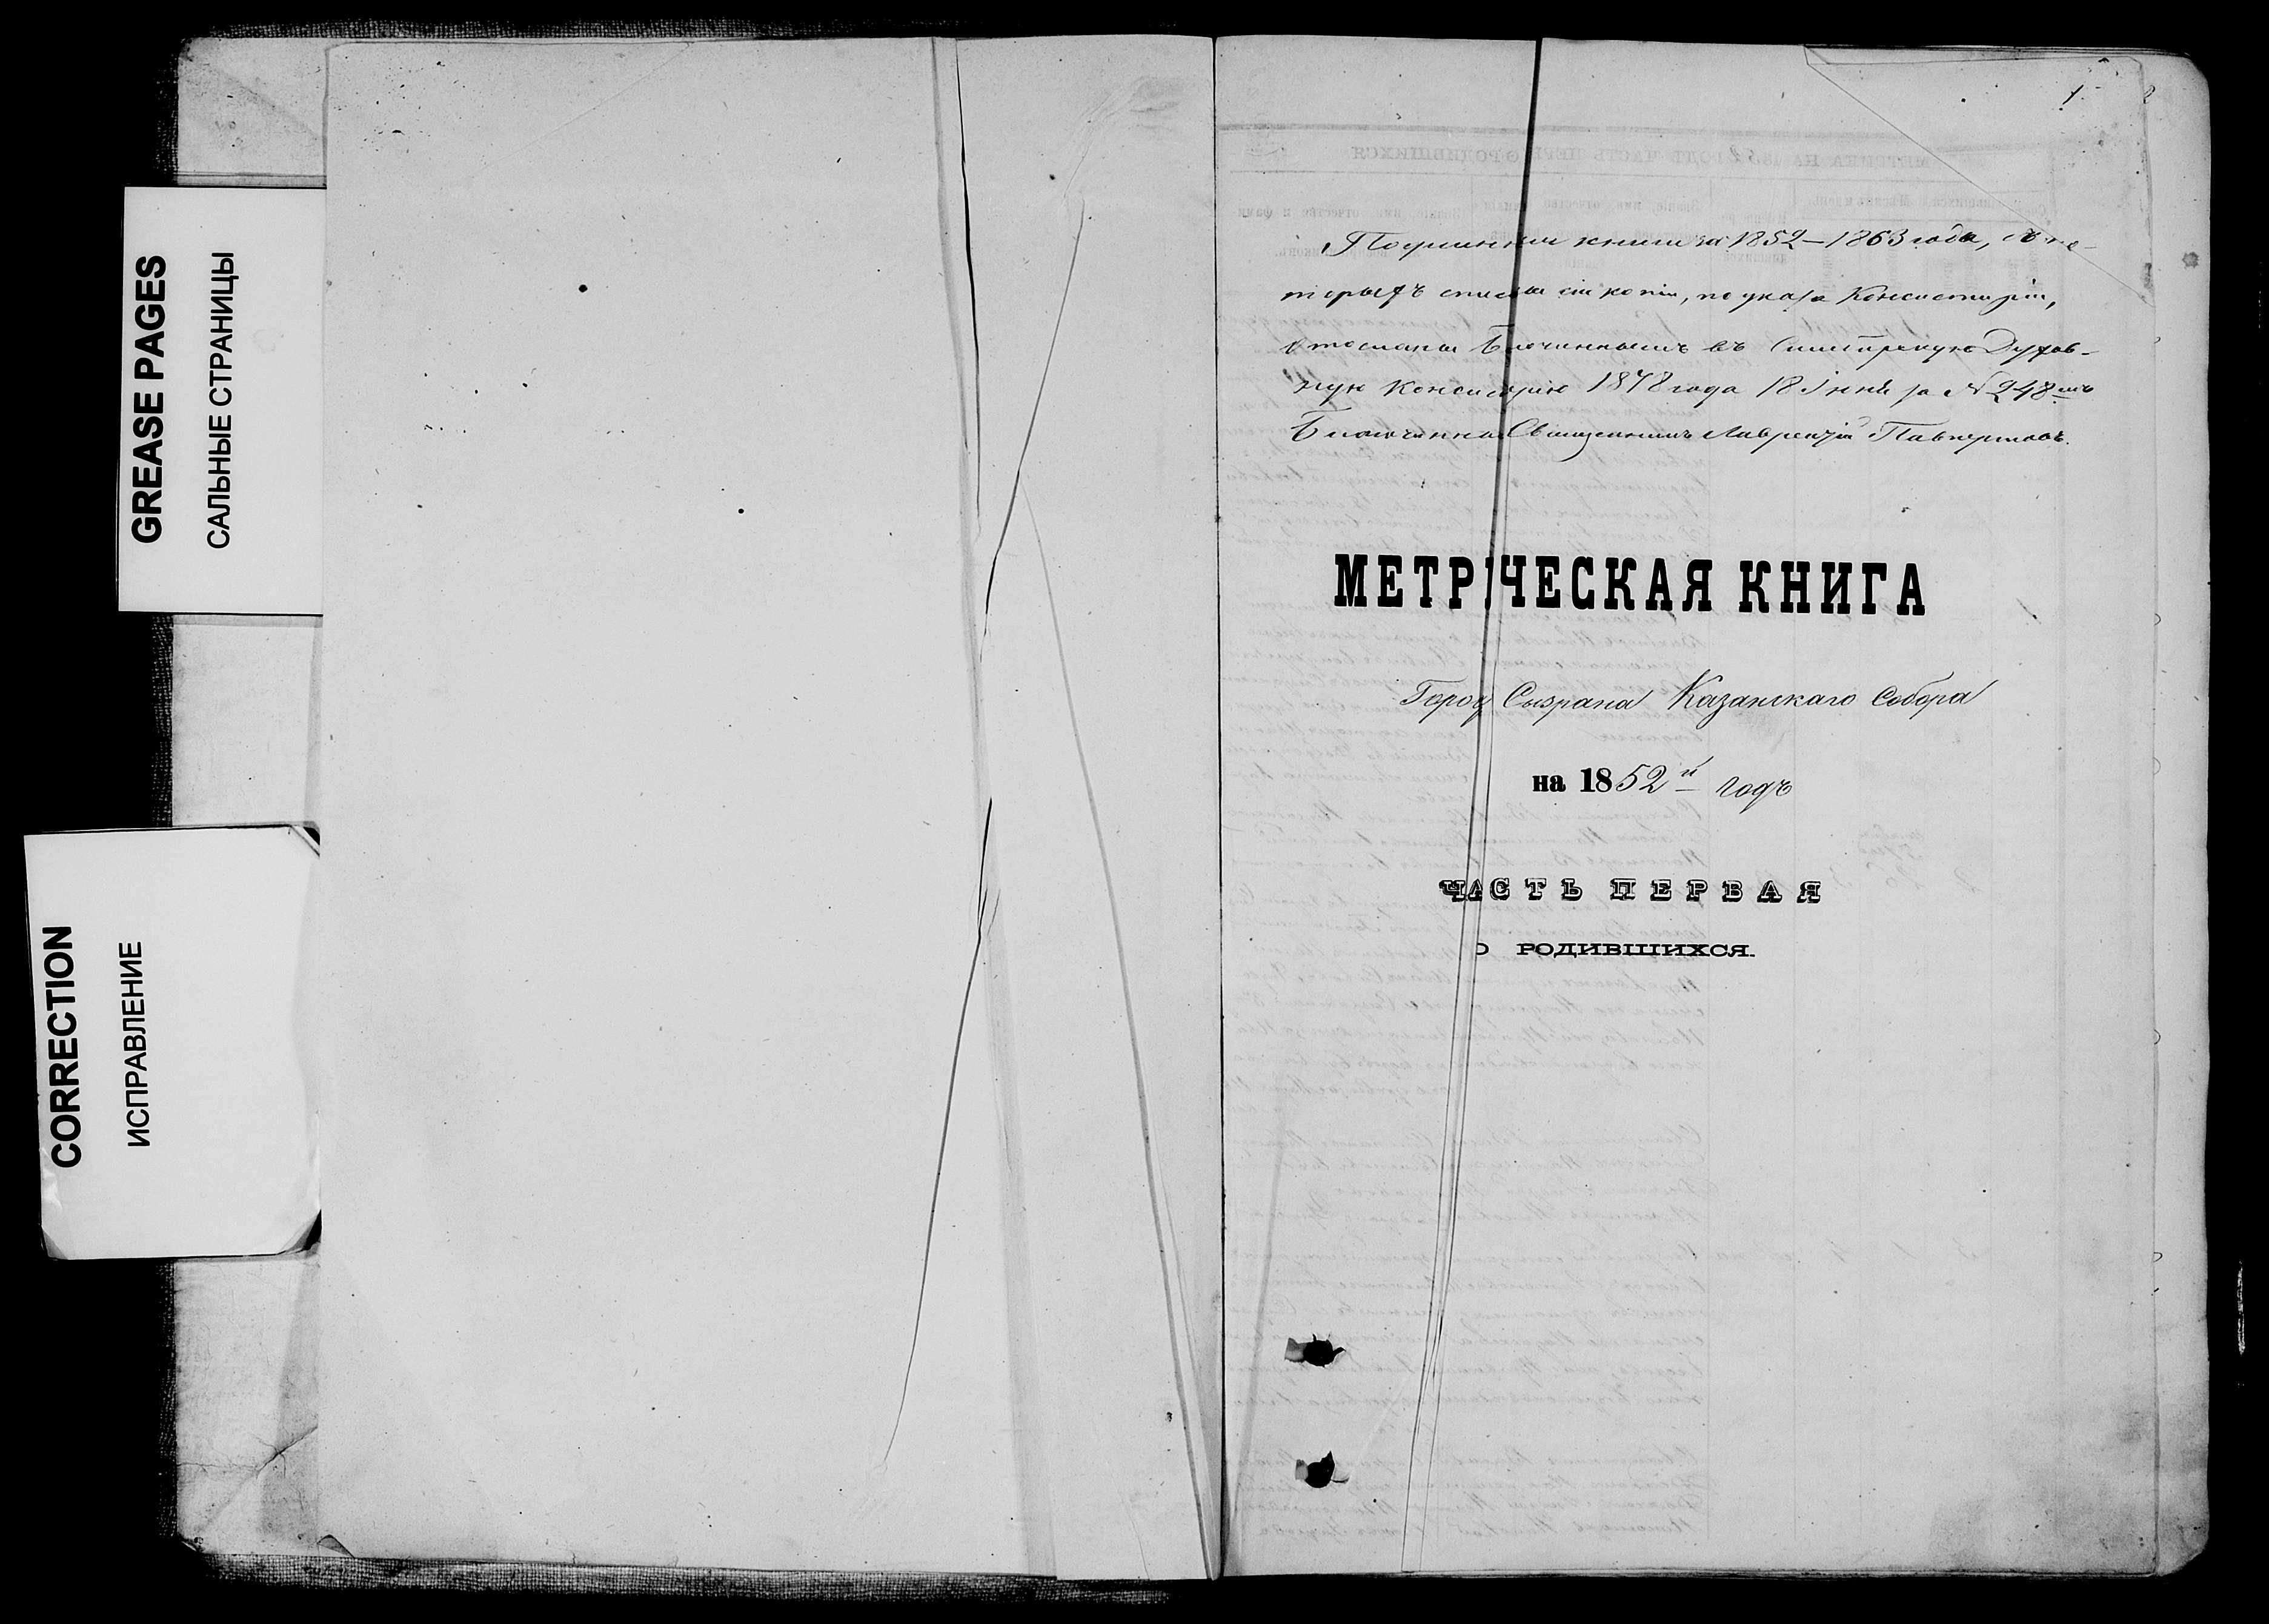 GREASE PAGES
САЛЬНЫЕ СТРАНИЦЫ
CORRECTION
ИСПРАВЛЕНИЕ
1
Подлинныя книги за 1852–1863 года, съ ко-
торыхъ списаны сіи копіи, по указу Консисторіи,
отосланы Благочиннымъ въ Симбирскую Духов-
ную Консисторію 1878 года 18 Іюня за № 248 мъ
Благочинный Священникъ Лаврентій
МЕТРИЧЕСКАЯ КНИГА
Город Сызрана Казанскаго Собора
на 1852й годъ
ЧАСТЬ ПЕРВАЯ
О РОДИВШИХСЯ.